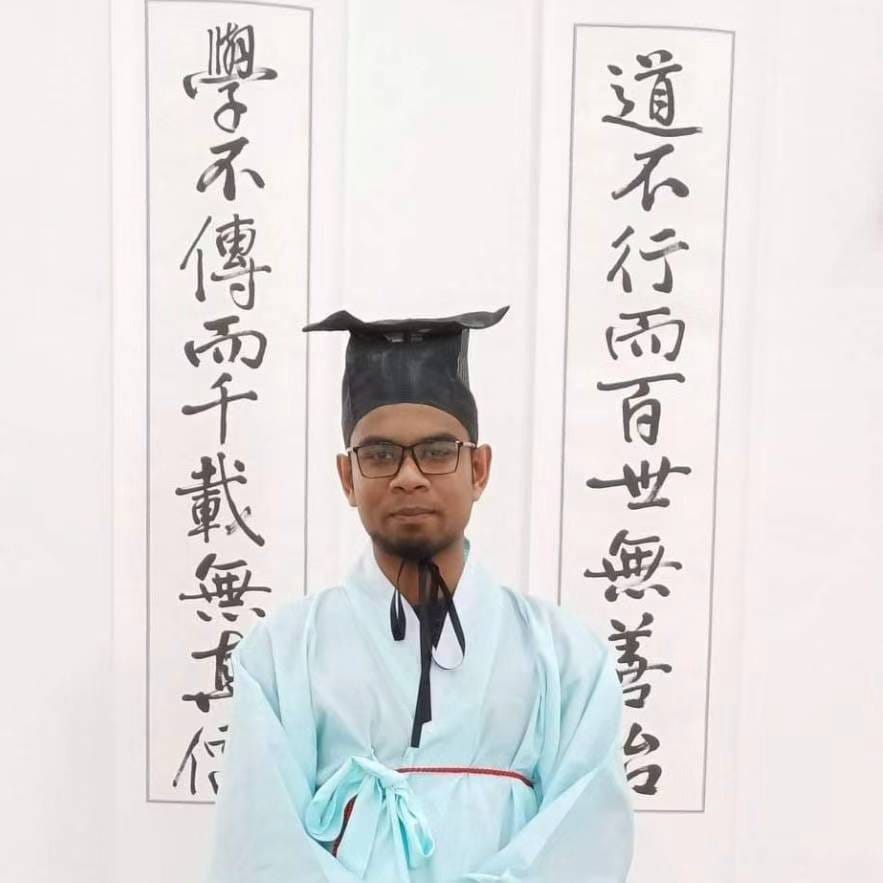 道不行而百世無善治
學不傳而千載無真儒